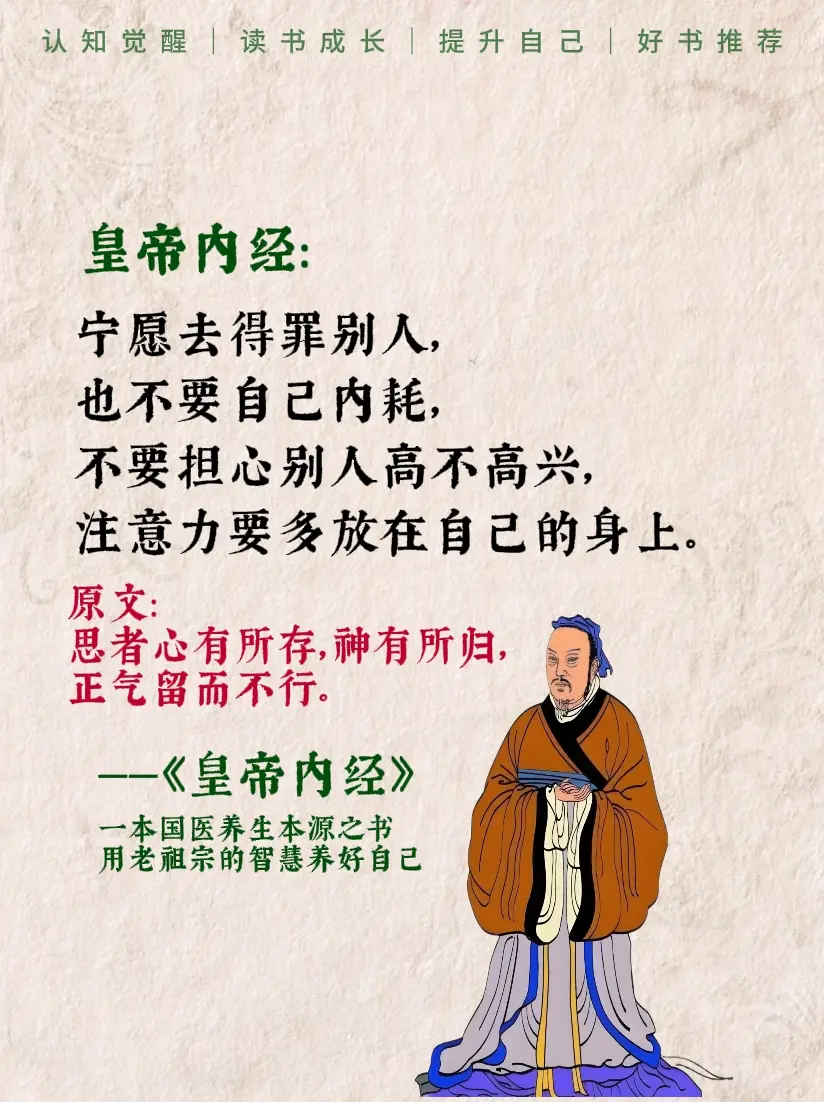 认知觉醒｜读书成长｜提升自己｜好书推荐
皇帝内经:
宁愿去得罪别人,
也不要自己内耗,
不要担心别人高不高兴,
注意力要多放在自己的身上。
原文:
思者心有所存,神有所归,
正气留而不行。
——《皇帝内经》
一本国医养生本源之书
用老祖宗的智慧养好自己